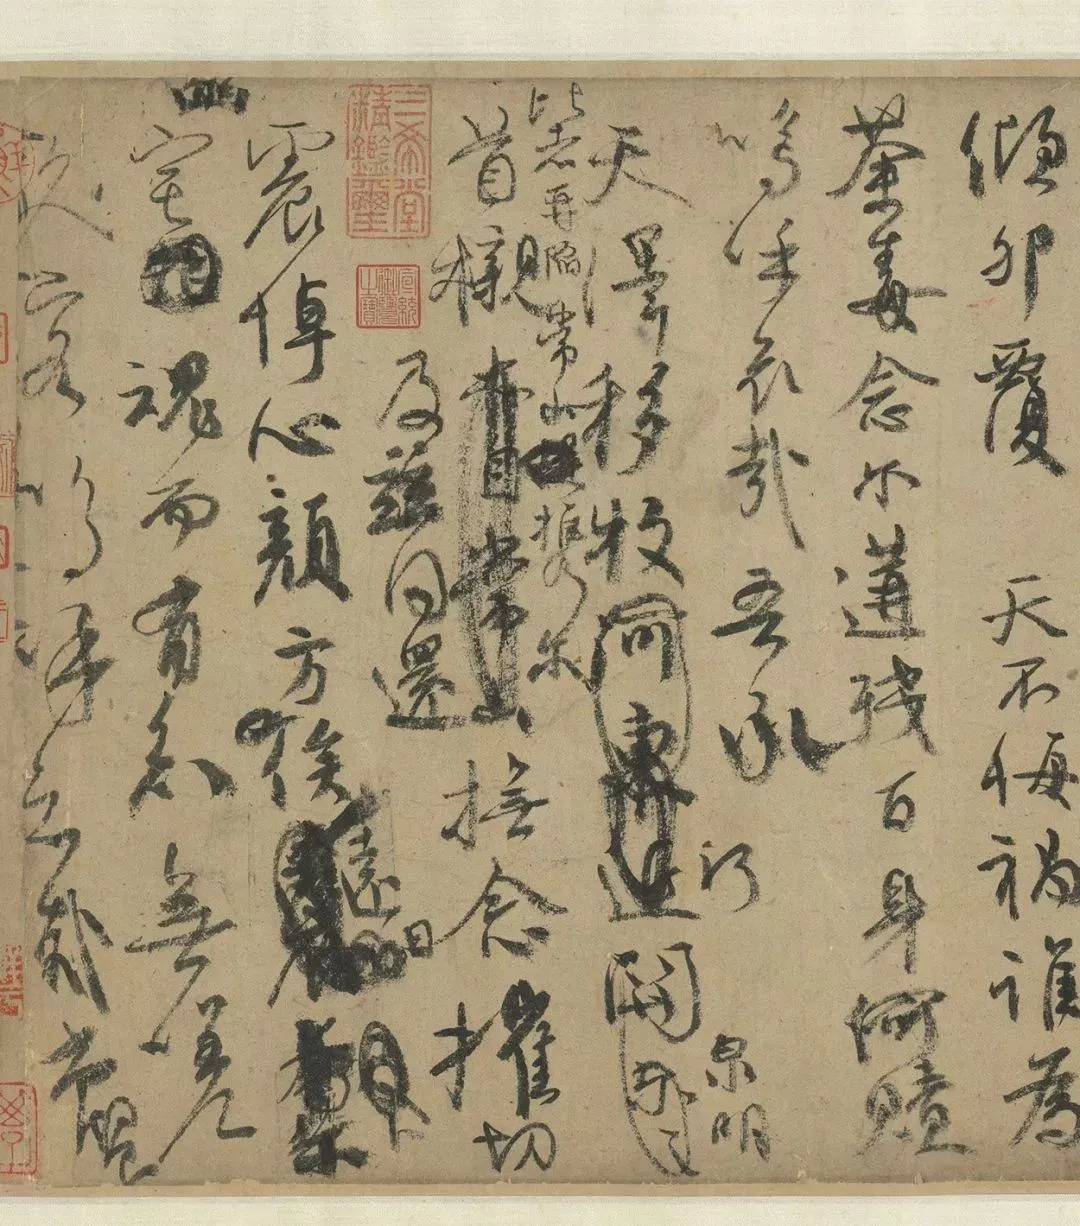 傾卵覆 天不悔禍誰為
荼毒念爾遘殘百身何贖
嗚呼哀哉吾承
天澤移牧河東近河關
泉明
比者再陷常山攜爾
首櫬亦自常山撫念摧切
及茲同還
三希堂精鑑璽
宣統御覽之寶
震悼心顏方俟
遠日
幽宅魂而有知無嗟
久客嗚呼哀哉尚饗